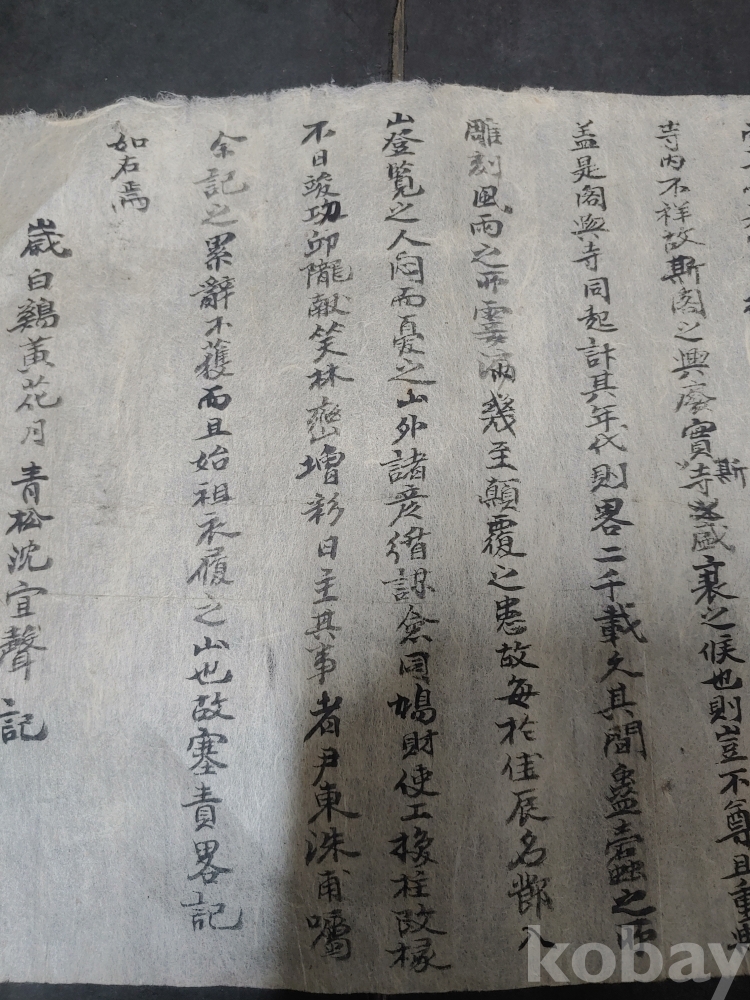 寺內不祥故斯閣之興廢實斯寺盛衰之候也則豈不尊且重與
盖是閣與寺同起計其年代則畧二千載久其間蠱蠹之所
雕刻風雨之所霻漏幾至顚覆之患故每於佳辰名節入
山登覽之人悶而憂之山外諸彦循謀僉同鳩財使工換柱改椽
不日竣功邱隴獻笑林巒增彩日主其事者尹東洙甫囑
余記之累辭不獲而且始祖衣履之山也故塞責畧記
如右焉
歲白鷄黃花月青松沈宜聲 記
kobay